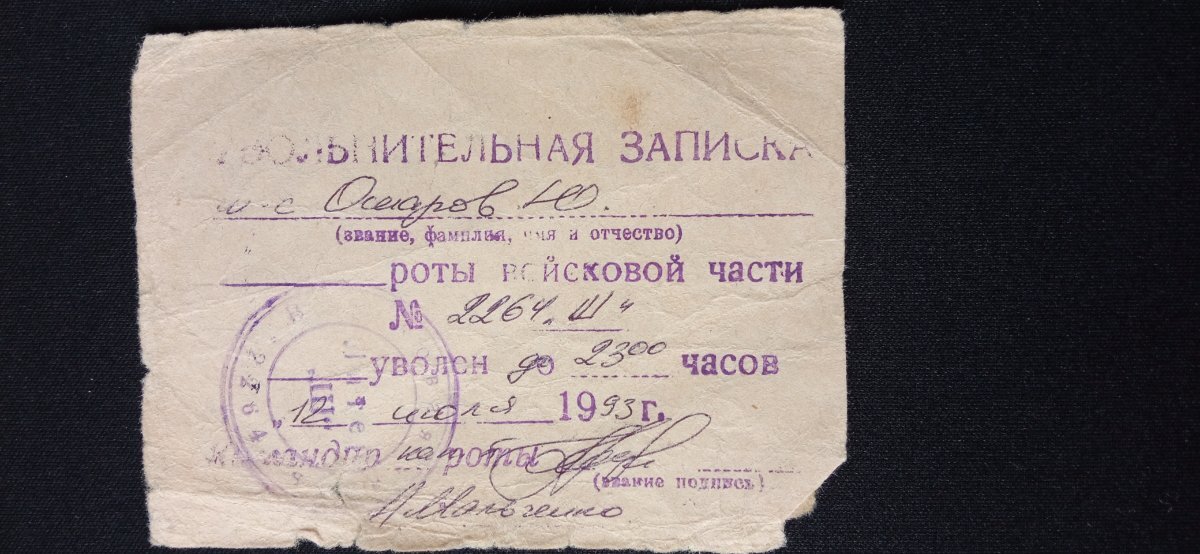 УВОЛЬНИТЕЛЬНАЯ ЗАПИСКА
Омаров Ю.
(звание, фамилия, имя и отчество)
роты войсковой части
№ 2264 "Ш"
уволен до 23⁰⁰ часов
"12" июля 1993 г.
роты
(звание подпись)